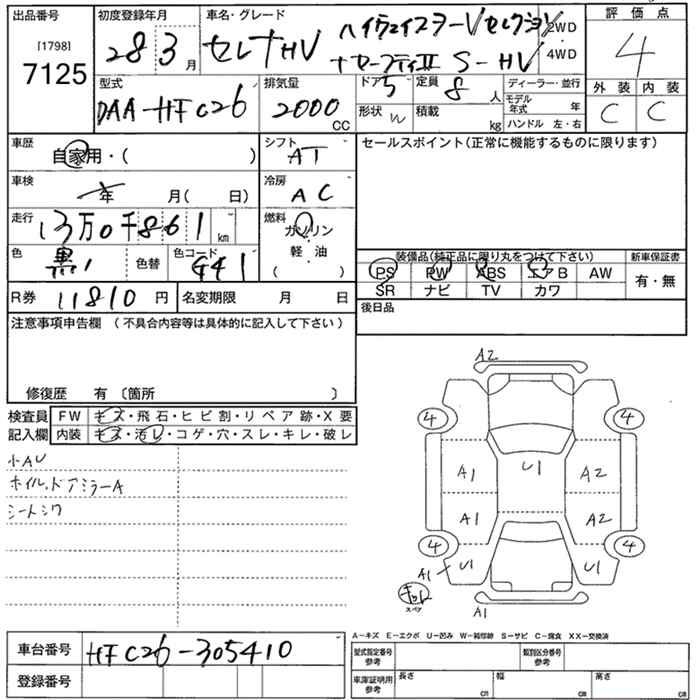 出品番号
[1798]
7125
初度登録年月
28 3月
車名・グレード
セレナHV
ハイウェイスターVセレクション
+セーフティII S-HV
2WD
4WD
評価点
4
外装 内装
C C
型式
DAA-HFC26
排気量
2000 CC
ドア 5
形状 W
定員 8 人
積載 kg
ディーラー・並行
モデル年式 年
ハンドル 左・右
車歴
自家用・( )
シフト
AT
セールスポイント(正常に機能するものに限ります)
車検
年 月( 日)
冷房
AC
走行
13万0千861 km
燃料
ガソリン
軽・油
( )
色 黒
色替
色コード G41
R券 11810 円
名変期限 月 日
装備品(純正品に限り丸をつけて下さい)
PS PW ABS エアB AW
SR ナビ TV カワ
新車保証書
有・無
後日品
注意事項申告欄 (不具合内容等は具体的に記入して下さい)
修復歴 有 〔箇所 〕
検査員記入欄
FW キズ・飛石・ヒビ割・リペア跡・X要
内装 キズ・汚レ・コゲ・穴・スレ・キレ・破レ
小AU
ホイル、ドアミラーA
シートシワ
A2
4 4
A1 U1 A2
A1 A2
4 4
A1 U1 U1
キット
スペア
A1
A-キズ E-エクボ U-凹み W-補修跡 S-サビ C-腐食 XX-交換済
車台番号 HFC26-305410
登録番号
型式指定番号 参考
類別区分番号 参考
車庫証明用 参考
長さ cm
幅 cm
高さ cm